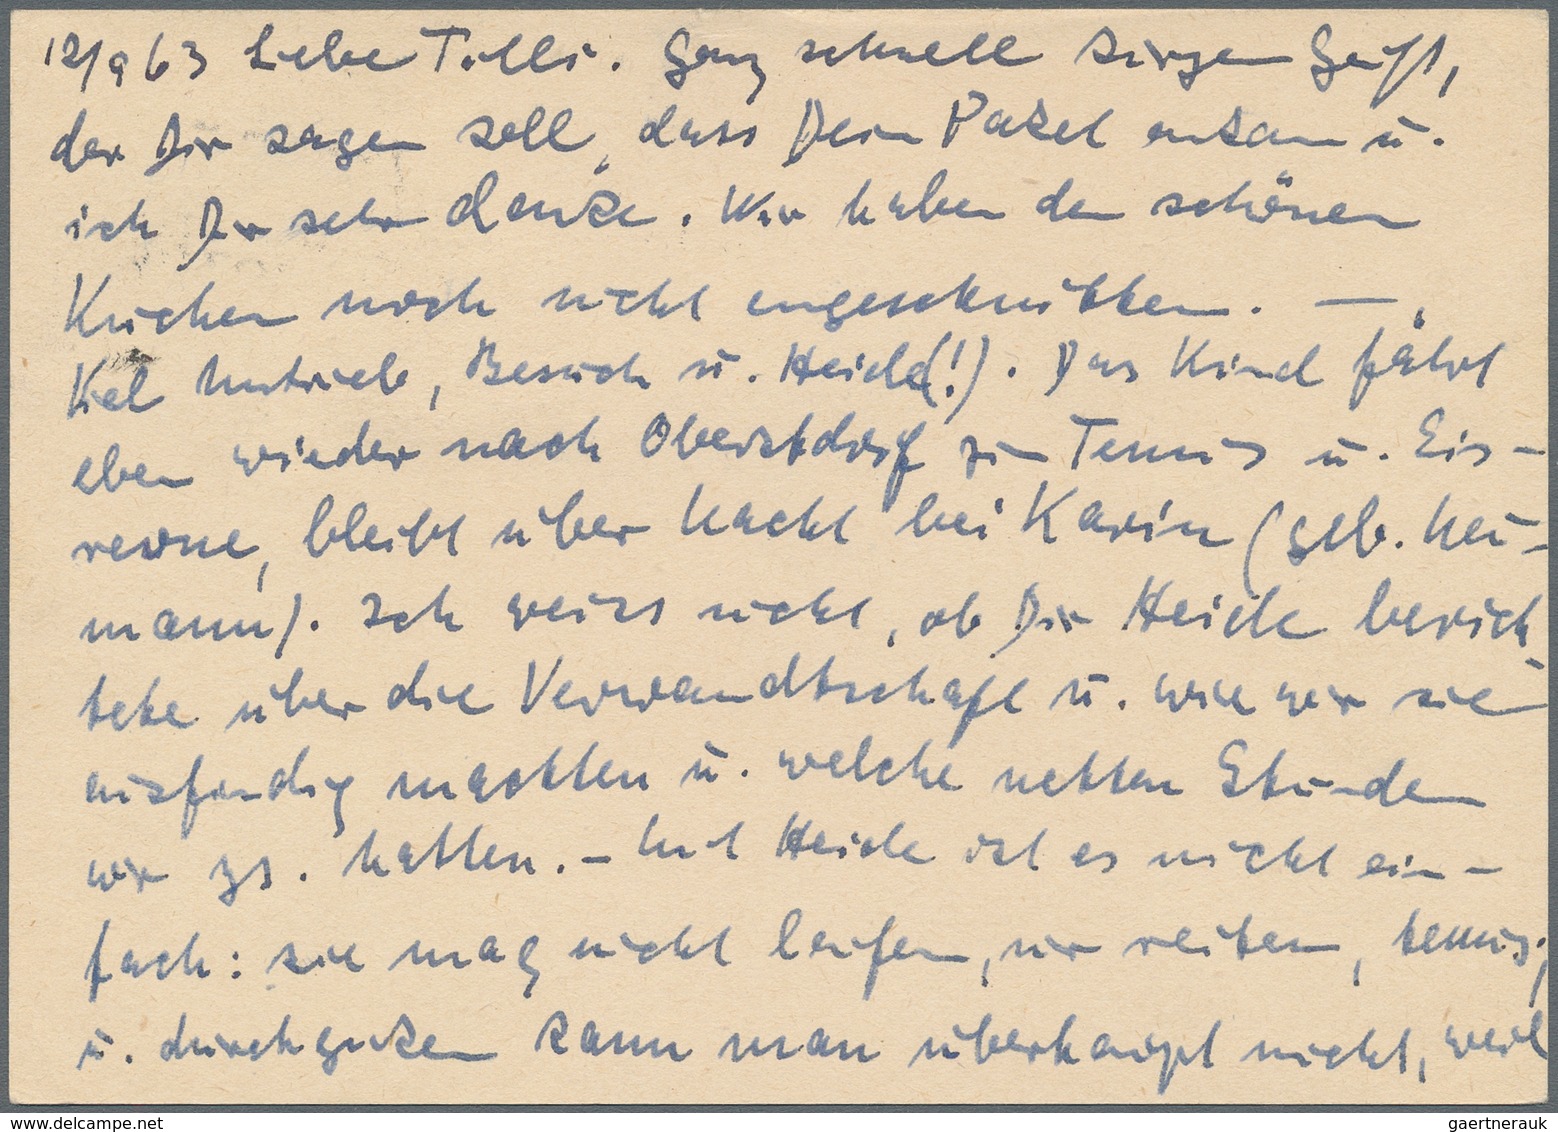 12/9 63 Liebe Tilli. Ganz schnell kurzen Gruß,
der Dir sagen soll, dass Dein Paket ankam u.
ich Dir sehr danke. Wir haben den schönen
Kuchen noch nicht angeschnitten. —
Viel Umtrieb, Besuch u. Heide(!). Das Kind fährt
eben wieder nach Oberstdorf zu Tennis u. Eis-
revue, bleibt über Nacht bei Karin (geb. Neu-
mann). Ich weiss nicht, ob Dir Heide berich-
tete über die Verwandtschaft u. wie wir sie
ausfindig machten u. welche netten Stunden
wir zs. hatten. – Mit Heide ist es nicht ein-
fach: sie mag nicht laufen, nur reiten, tennis,
u. durchgucken kann man überhaupt nicht, weil
gaertnerauk